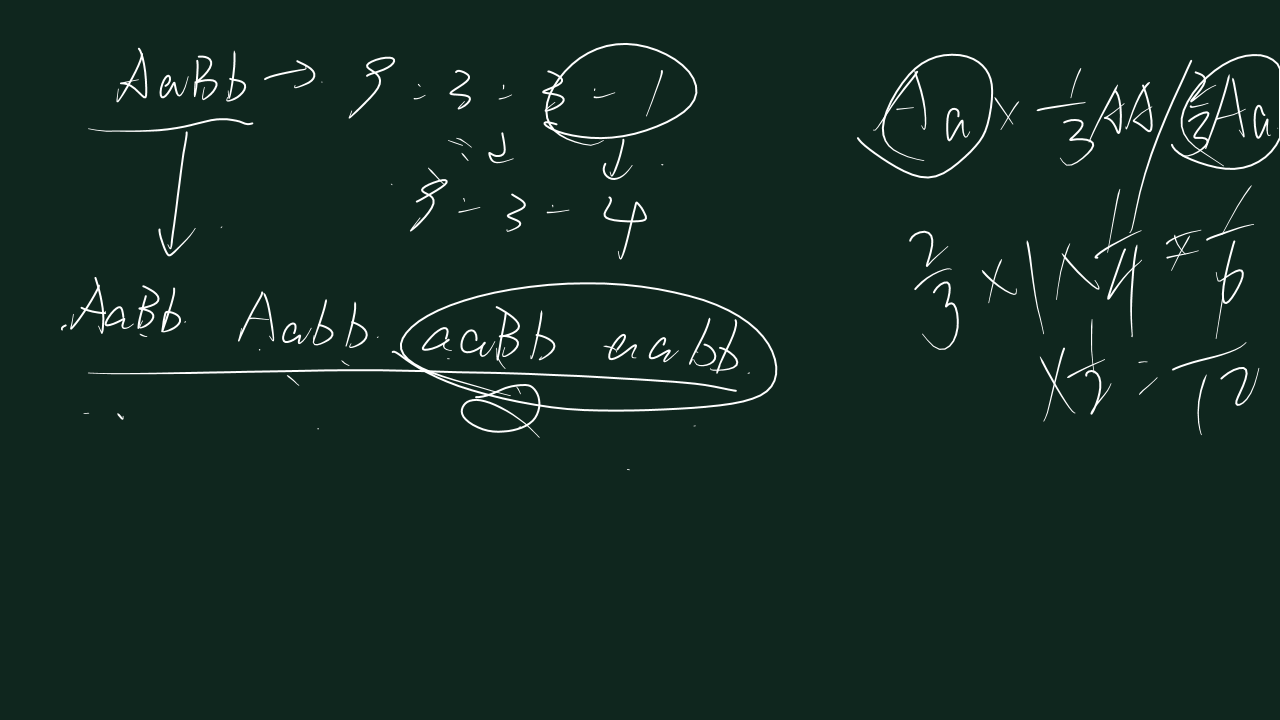 AaBb → 9 : 3 : 3 : 1
9 : 3 : 4
AaBb Aabb aaBb aabb
Aa × 1/3 AA / 2/3 Aa
2/3 × 1 × 1/4 = 1/6
× 1/2 = 1/12